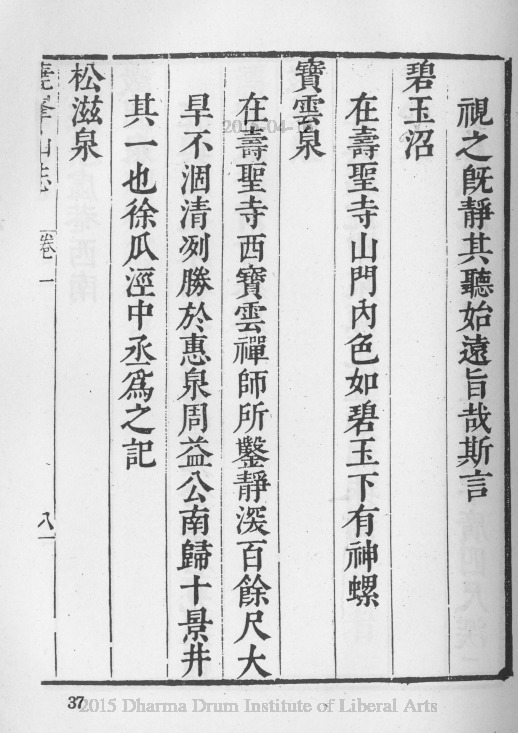 視之旣靜其聽始遠旨哉斯言
碧玉沼
在壽聖寺山門內色如碧玉下有神螺
寶雲泉
在壽聖寺西寶雲禪師所鑿靜深百餘尺大
旱不涸清冽勝於惠泉周益公南歸十景井
其一也徐瓜涇中丞爲之記
松滋泉
堯峯山志 卷一 八
37
2015 Dharma Drum Institute of Liberal Arts